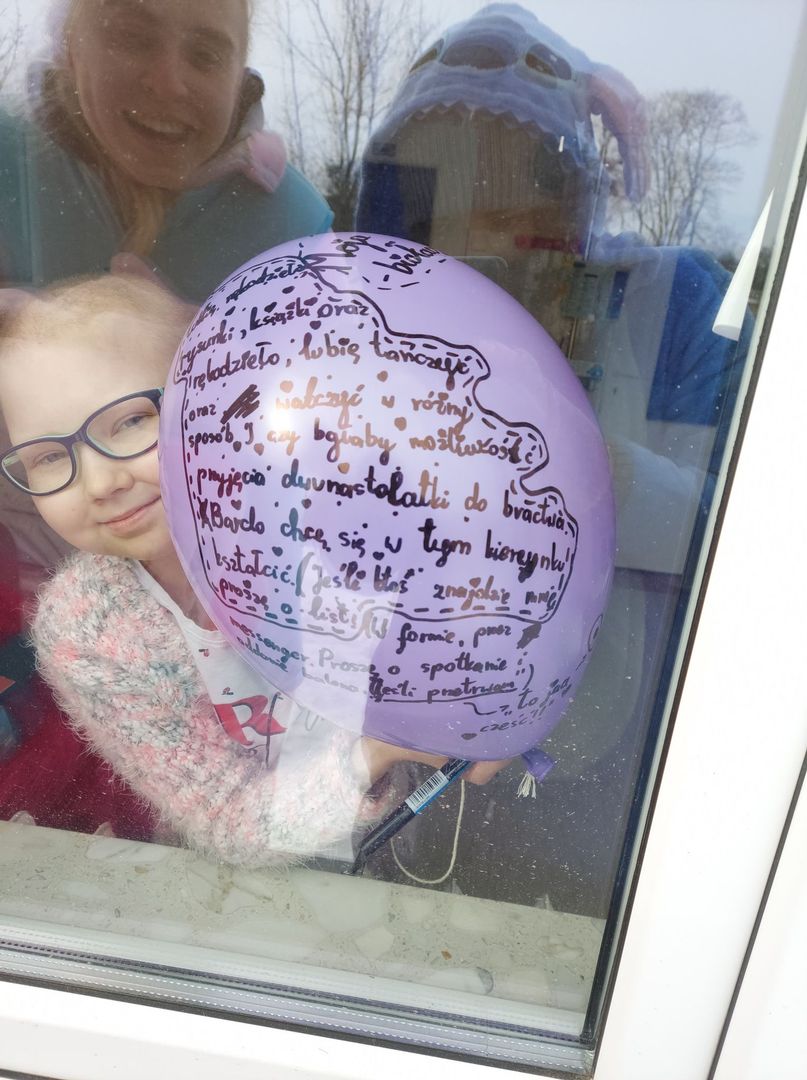 rękodzieło
rysunki, książki oraz
rękodzieło, lubię tańczyć
oraz walczyć w różny
sposób. I czy byłaby możliwość
przyjęcia dwunastolatki do bractwa.
Bardo chcę się w tym kierɥnku
kształcić. (Jeśli ktoś znajdzie mnię
proszę o list! (W formie, przez
messenger. Proszę o spotkanie
oddanie balona jeśli przetrwam
"to pa
cześć!"